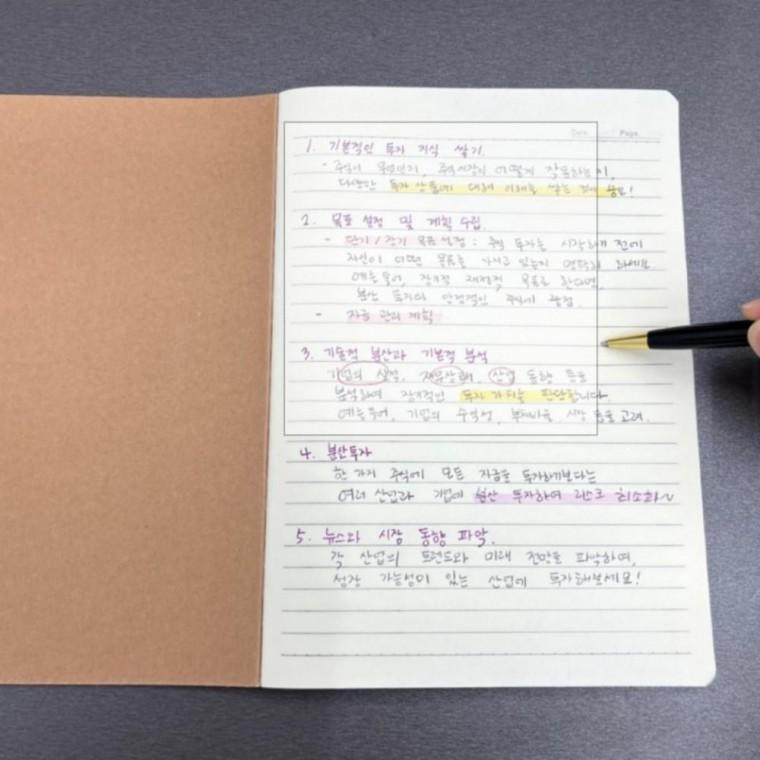 Date. Page.
1. 기본적인 투자 지식 쌓기.
- 주식이 무엇인지, 주식시장이 어떻게 작동하는지,
다양한 투자 상품에 대해 이해를 쌓는 것이 중요!
2. 목표 설정 및 계획 수립.
- 단기 / 장기 목표 설정 : 주식 투자를 시작하기 전에
자신이 어떤 목표를 가지고 있는지 명확히 하세요.
예를 들어, 장기적 재정적 목표로 한다면,
분산 투자와 안정적인 주식에 중점.
- 자금 관리 계획
3. 기술적 분산과 기본적 분석
기업의 실적, 재무상태, 산업 동향 등을
분석하여 장기적인 투자 가치를 판단합니다.
예를들어, 기업의 수익성, 부채비율, 시장 등을 고려.
4. 분산투자
한 가지 주식에 모든 자금을 투자하기보다는
여러 산업과 기업에 분산 투자하여 리스크 최소화~
5. 뉴스와 시장 동향 파악.
각 산업의 트렌드와 미래 전망을 파악하여,
성장 가능성이 있는 산업에 투자해보세요!